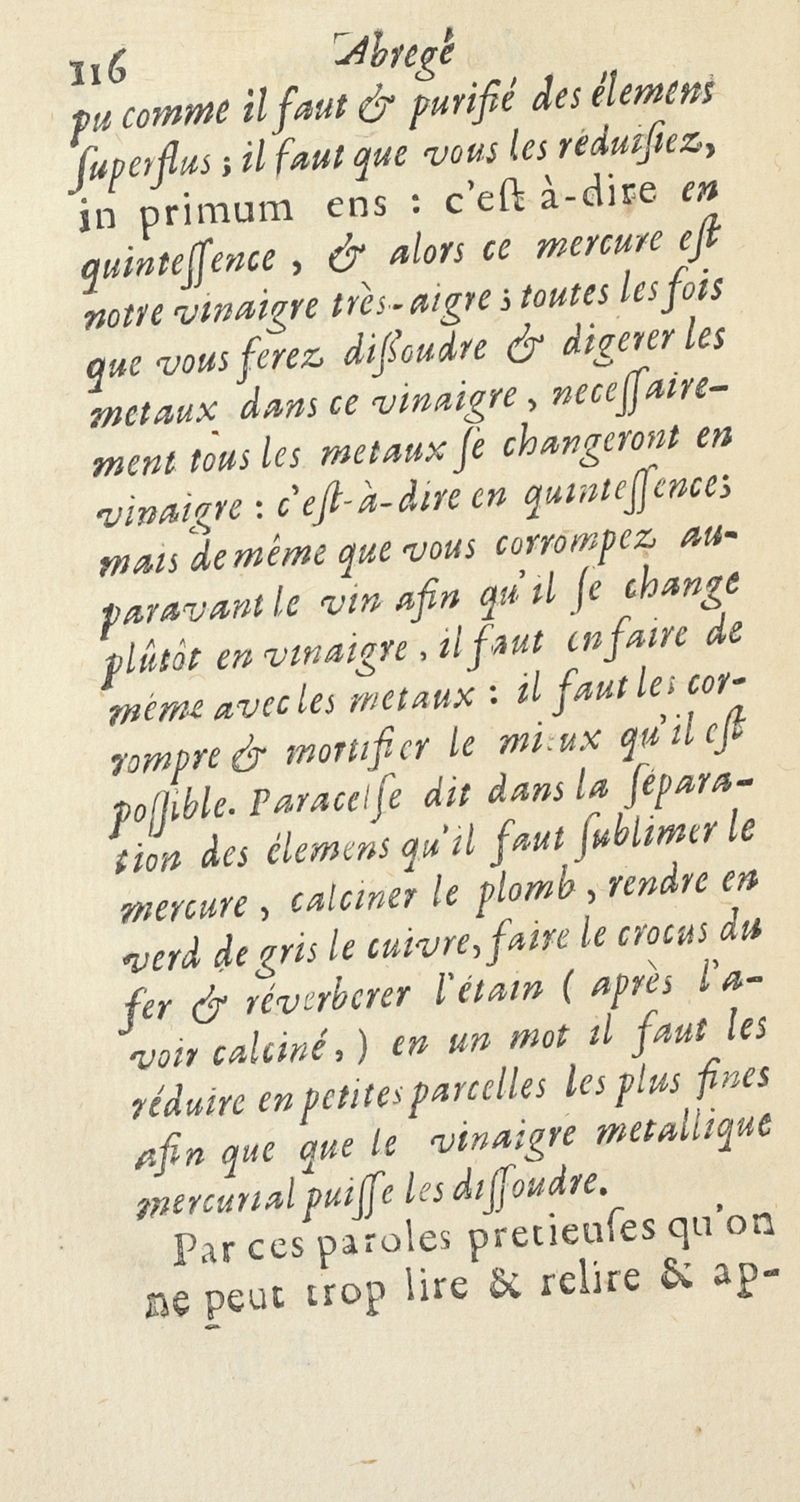 116 Abregé
pu comme il faut & purifié des élemens
ſuperflus ; il faut que vous les réduiſiez,
in primum ens : c'eſt à-dire en
quinteſſence , & alors ce mercure eſt
notre vinaigre très-aigre ; toutes les fois
que vous ferez diſſoudre & digerer les
metaux dans ce vinaigre , neceſſaire-
ment tous les metaux ſe changeront en
vinaigre : c'eſt-à-dire en quinteſſence;
mais de même que vous corrompez au-
paravant le vin afin qu'il ſe change
plûtôt en vinaigre , il faut en faire de
même avec les metaux : il faut les cor-
rompre & mortifier le mieux qu'il eſt
poſſible. Paracelſe dit dans la ſépara-
tion des élemens qu'il faut ſublimer le
mercure , calciner le plomb , rendre en
verd de gris le cuivre, faire le crocus du
fer & réverberer l'étain ( après l'a-
voir calciné , ) en un mot il faut les
réduire en petites parcelles les plus fines
afin que que le vinaigre metallique
mercurial puiſſe les diſſoudre.
Par ces paroles pretieuſes qu'on
ne peut trop lire & relire & ap-